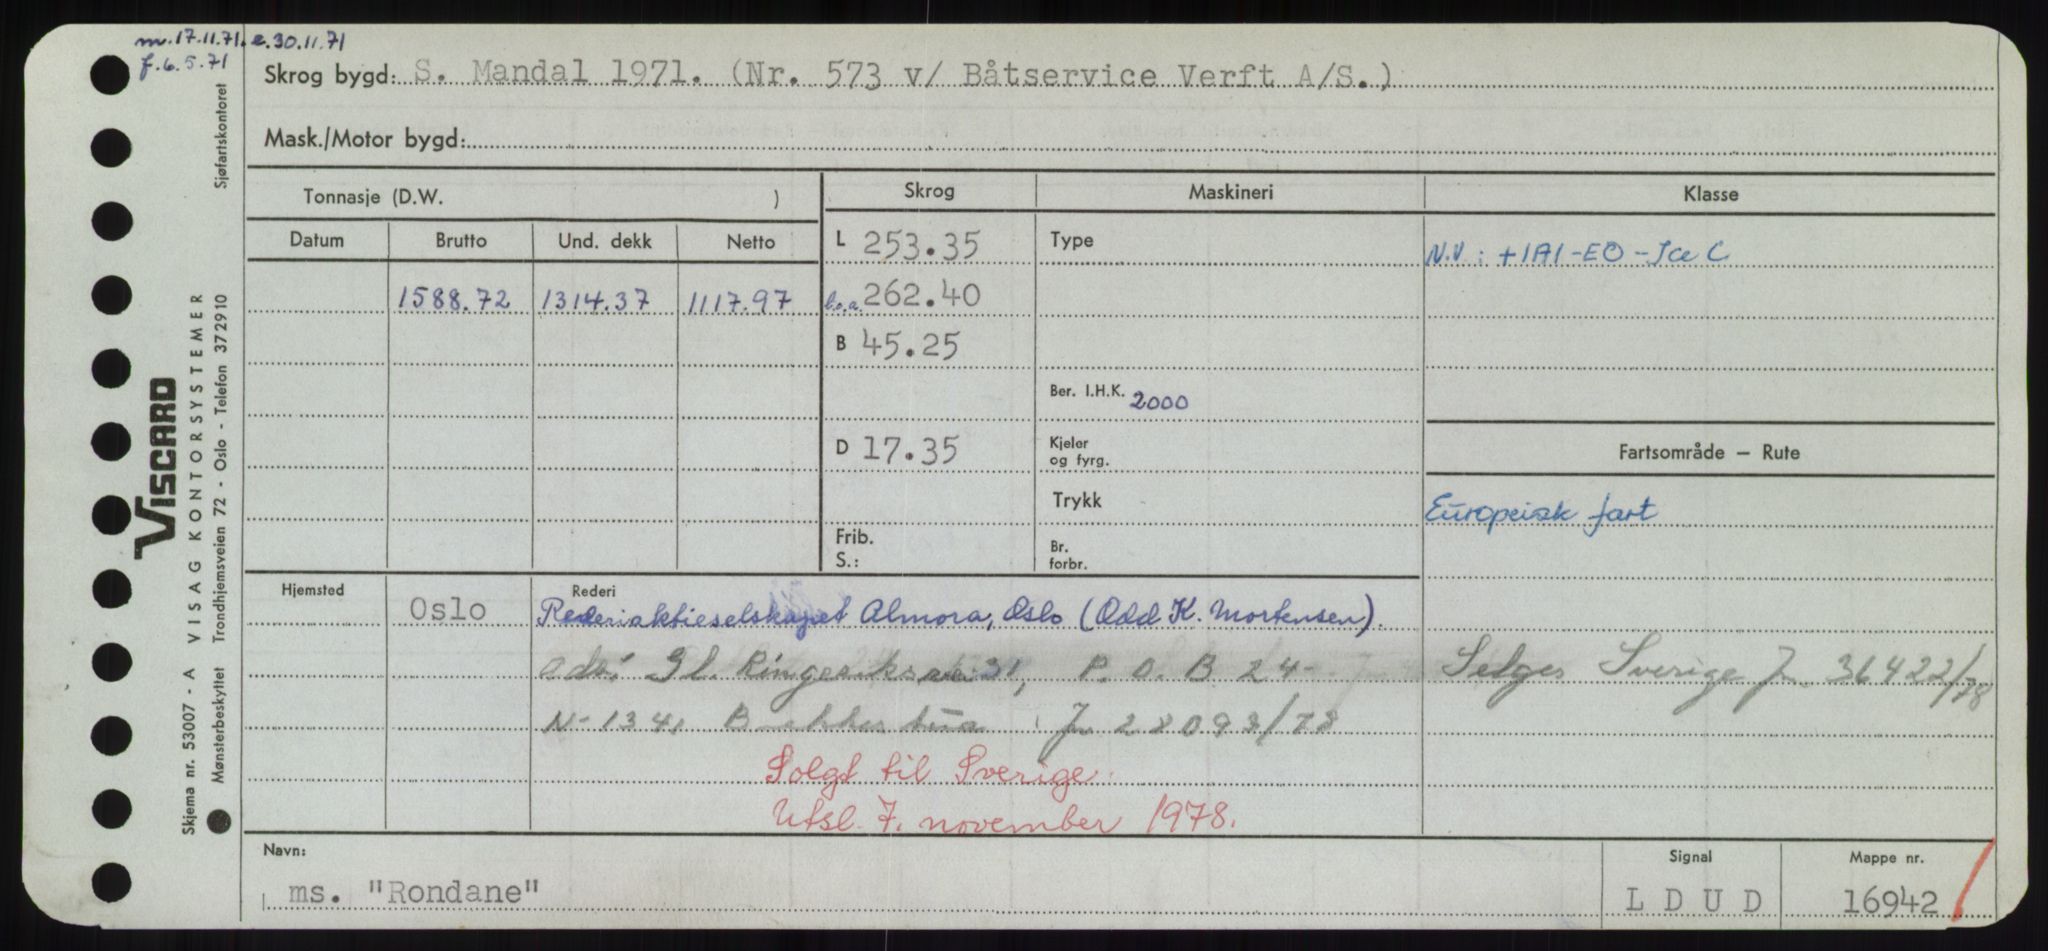 m. 17.11.71. e. 30.11.71
f. 6.5.71
Skrog bygd: S. Mandal 1971. (Nr. 573 v/ Båtservice Verft A/S.)
Mask./Motor bygd:
Tonnasje (D.W. )
Skrog
Maskineri
Klasse
Datum Brutto Und. dekk Netto
L 253.35
Type
N.V: +1A1-EO-Ice C
1588.72 1314.37 1117.97
l.o.a. 262.40
B 45.25
Ber. I.H.K. 2000
D 17.35
Kjeler
og fyrg.
Fartsområde — Rute
Trykk
Europeisk fart
Frib.
S.:
Br.
forbr.
Hjemsted
Oslo
Rederi
Rederiaktieselskapet Almora, Oslo (Odd K. Mortensen).
Adr: Gl. Ringeriksvei 31, P.O.B 24
Selges Sverige Jn. 36422/78
N-1341 Bekkestua Jn 28093/78
Solgt til Sverige.
Utsl. 7. november 1978.
Navn:
ms. "Rondane"
Signal
L D U D
Mappe nr.
16942
VISCARD
Skjema nr. 53007 - A VISAG KONTORSYSTEMER
Mønsterbeskyttet Trondhjemsveien 72 - Oslo - Telefon 372910 Sjøfartskontoret